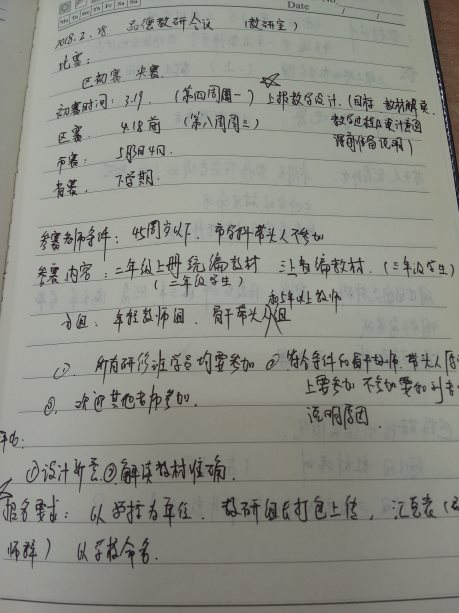 Date
Mo Tu We Th Fr Sa Su
2018.2.28 品德教研会议 (教研室)
比赛:
区初赛 决赛
初赛时间: 3.19 (第四周周一) 上报教学设计.(目标 教材解读
教学过程及设计意图
课前准备说明)
区赛: 4.18前 (第八周周三)
市赛: 5月4日
省赛: 下学期.
参赛老师条件: 45周岁以下. 市学科带头人不参加
参赛内容: 二年级上册统编教材 三上省编教材.(三年级学生)
(二年级学生)
和5年以上教师
分组: 年轻教师组. 骨干带头人组
①. 所有研修班学员均要参加 ② 符合条件的骨干教师.带头人
上要参加 不参加要
说明原因.
③. 欢迎其他老师参加.
①设计新意.②解读教材准确.
报名要求: 以学校为单位. 教研组长打包上传, 汇总表
师群) 以学校命名.